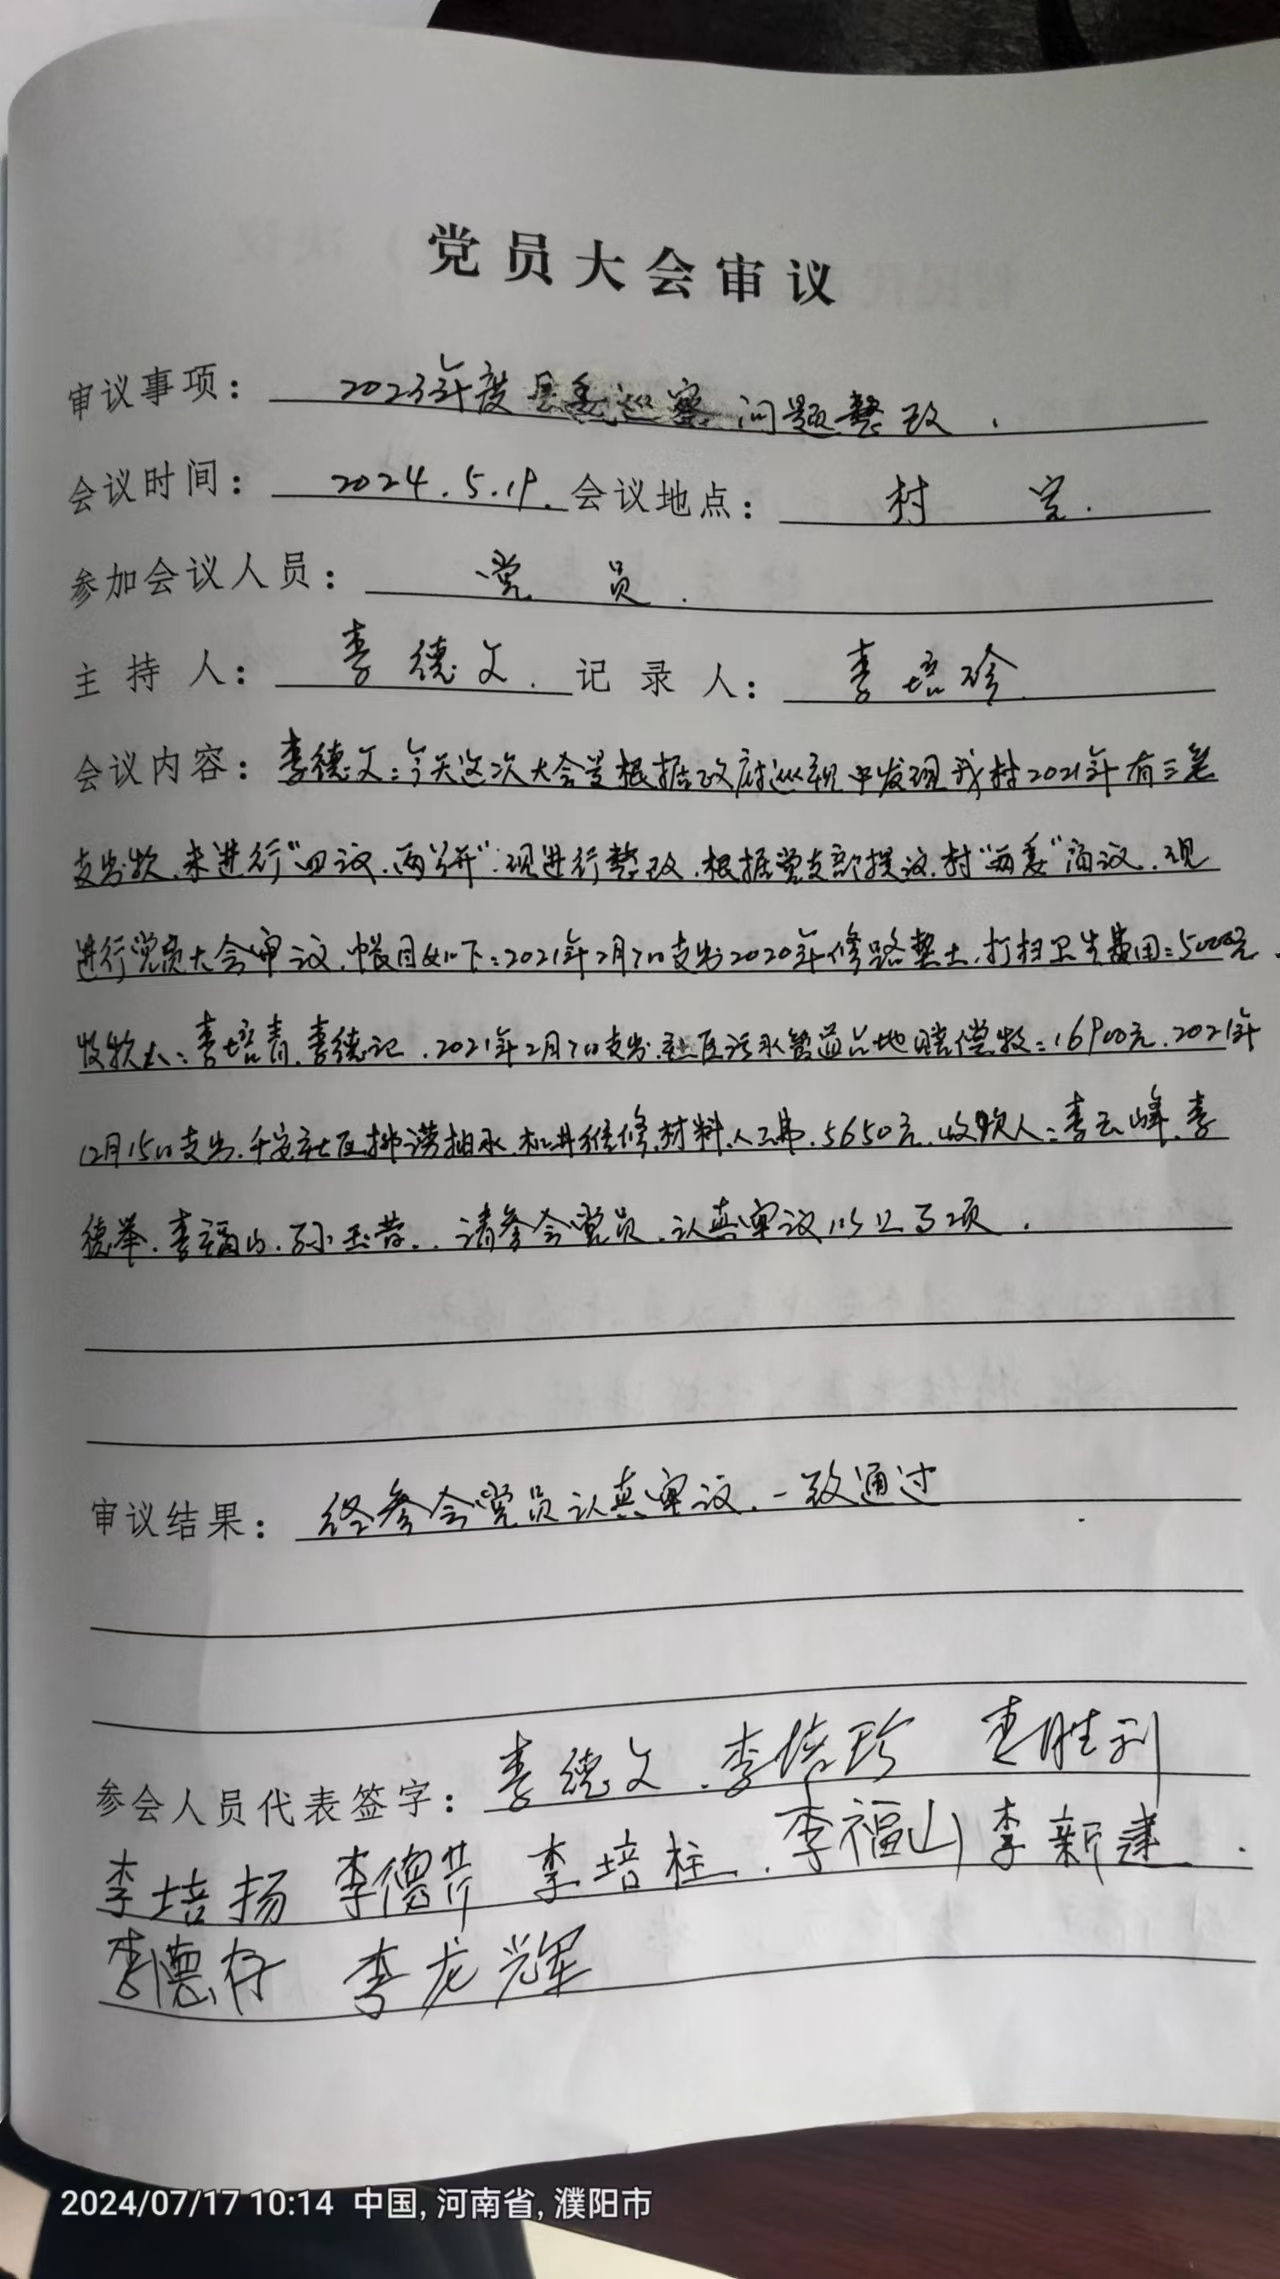 党员大会审议
审议事项：2023年度县委巡察问题整改.
会议时间：2024.5.19.会议地点：村室.
参加会议人员：党员.
主持人：李德文.记录人：李培珍
会议内容：李德文：今天这次大会是根据政府巡视中发现我村2021年有三笔
支出款.未进行"四议.两公开".现进行整改.根据党支部提议.村"两委"商议.现
进行党员大会审议.账目如下：2021年2月7日支出2020年修路垫土.打扫卫生费用：5000元
收款人：李培青.李德记.2021年2月7日支出.社区污水管道占地赔偿款：16900元.2021年
12月15日支出.千安社区排涝抽水.机井维修.材料.人工费.5650元.收款人：李玉峰.李
德举.李福山.孙玉荣..请参会党员.认真审议以上事项.
审议结果：经参会党员认真审议.一致通过
参会人员代表签字：李德文.李培珍 李胜利
李培扬 李德芹 李培柱.李福山 李新建.
李德存 李龙辉
2024/07/17 10:14 中国, 河南省, 濮阳市